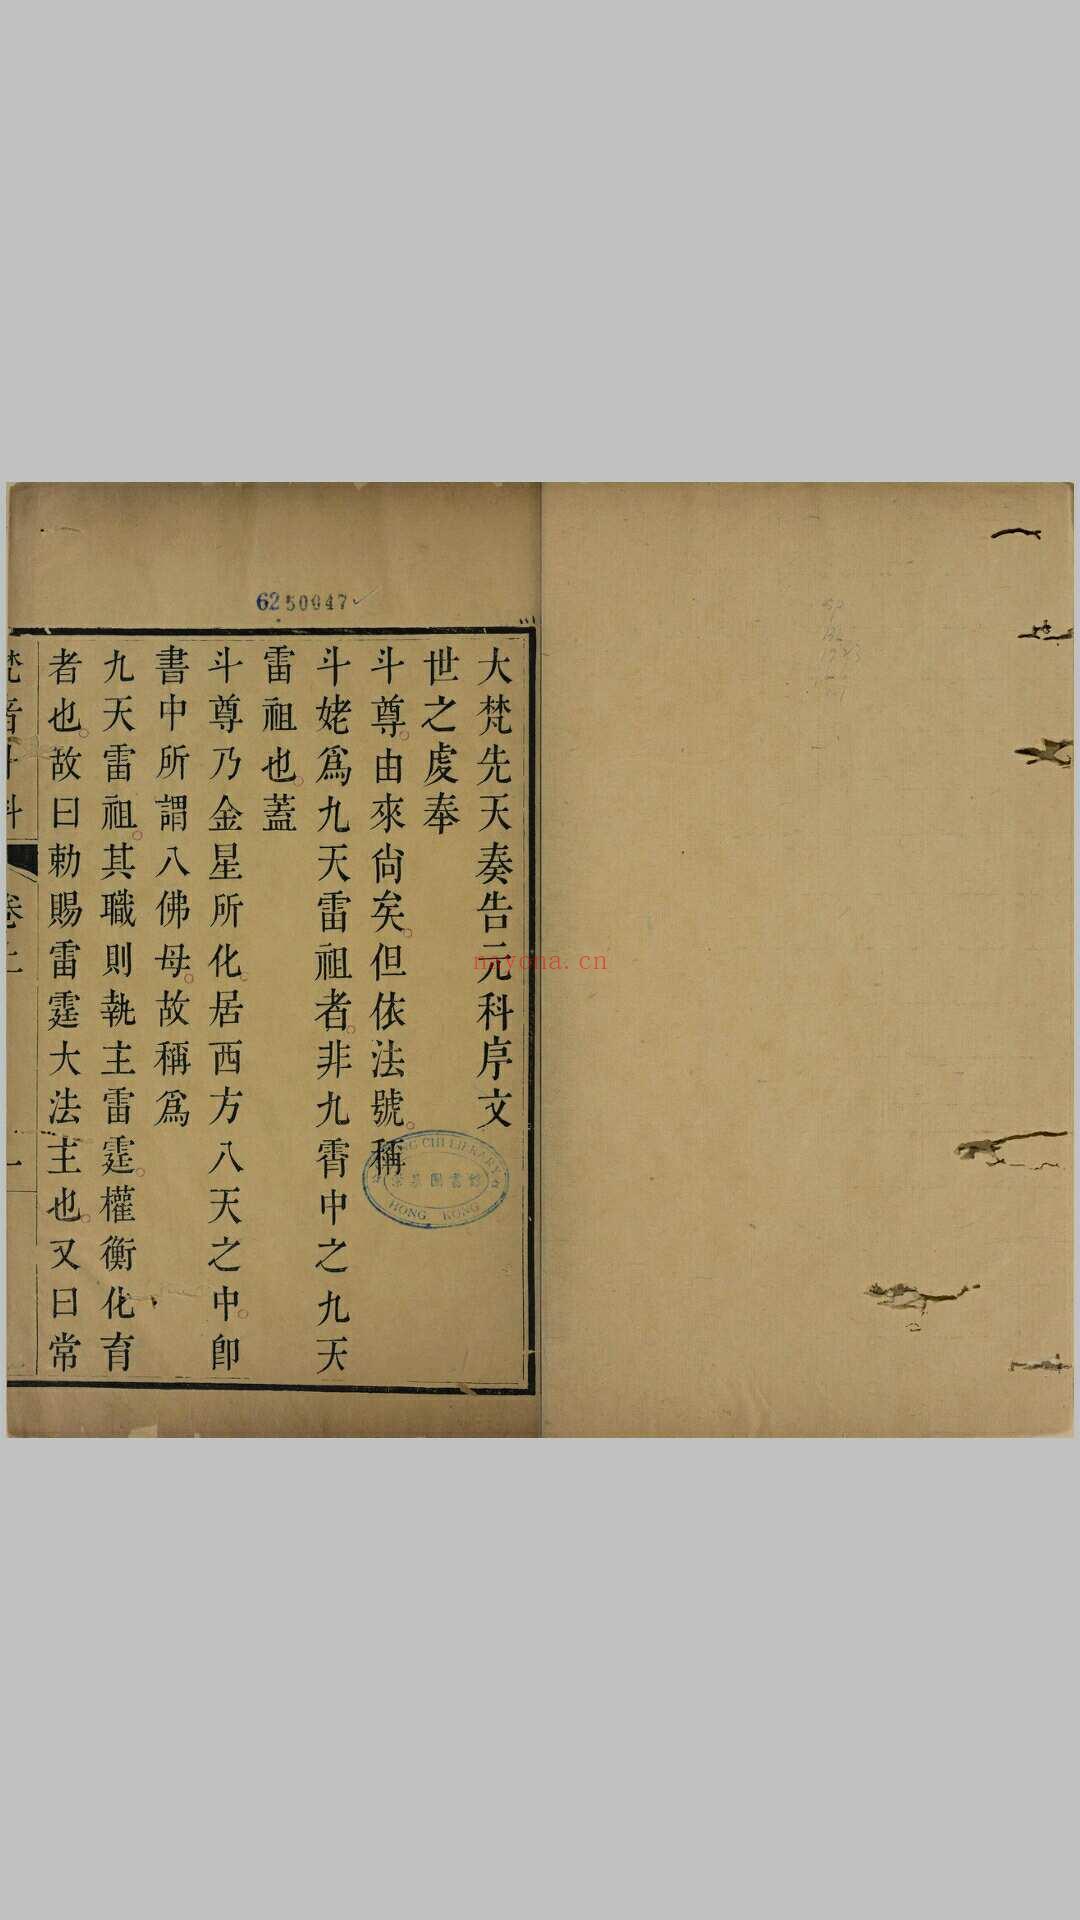 6250047
大梵先天奏告元科序文
世之虔奉
斗尊。由來尙矣。但依法號。稱
斗姥爲九天雷祖者。非九霄中之九天
雷祖也。蓋
斗尊乃金星所化。居西方八天之中。卽
書中所謂八佛母。故稱爲
九天雷祖。其職則執主雷霆。權衡化育
者也。故曰勅賜雷霆大法主也。又曰常
卷上
一
CHI LIBRARY
HONG KONG
nayona.cn